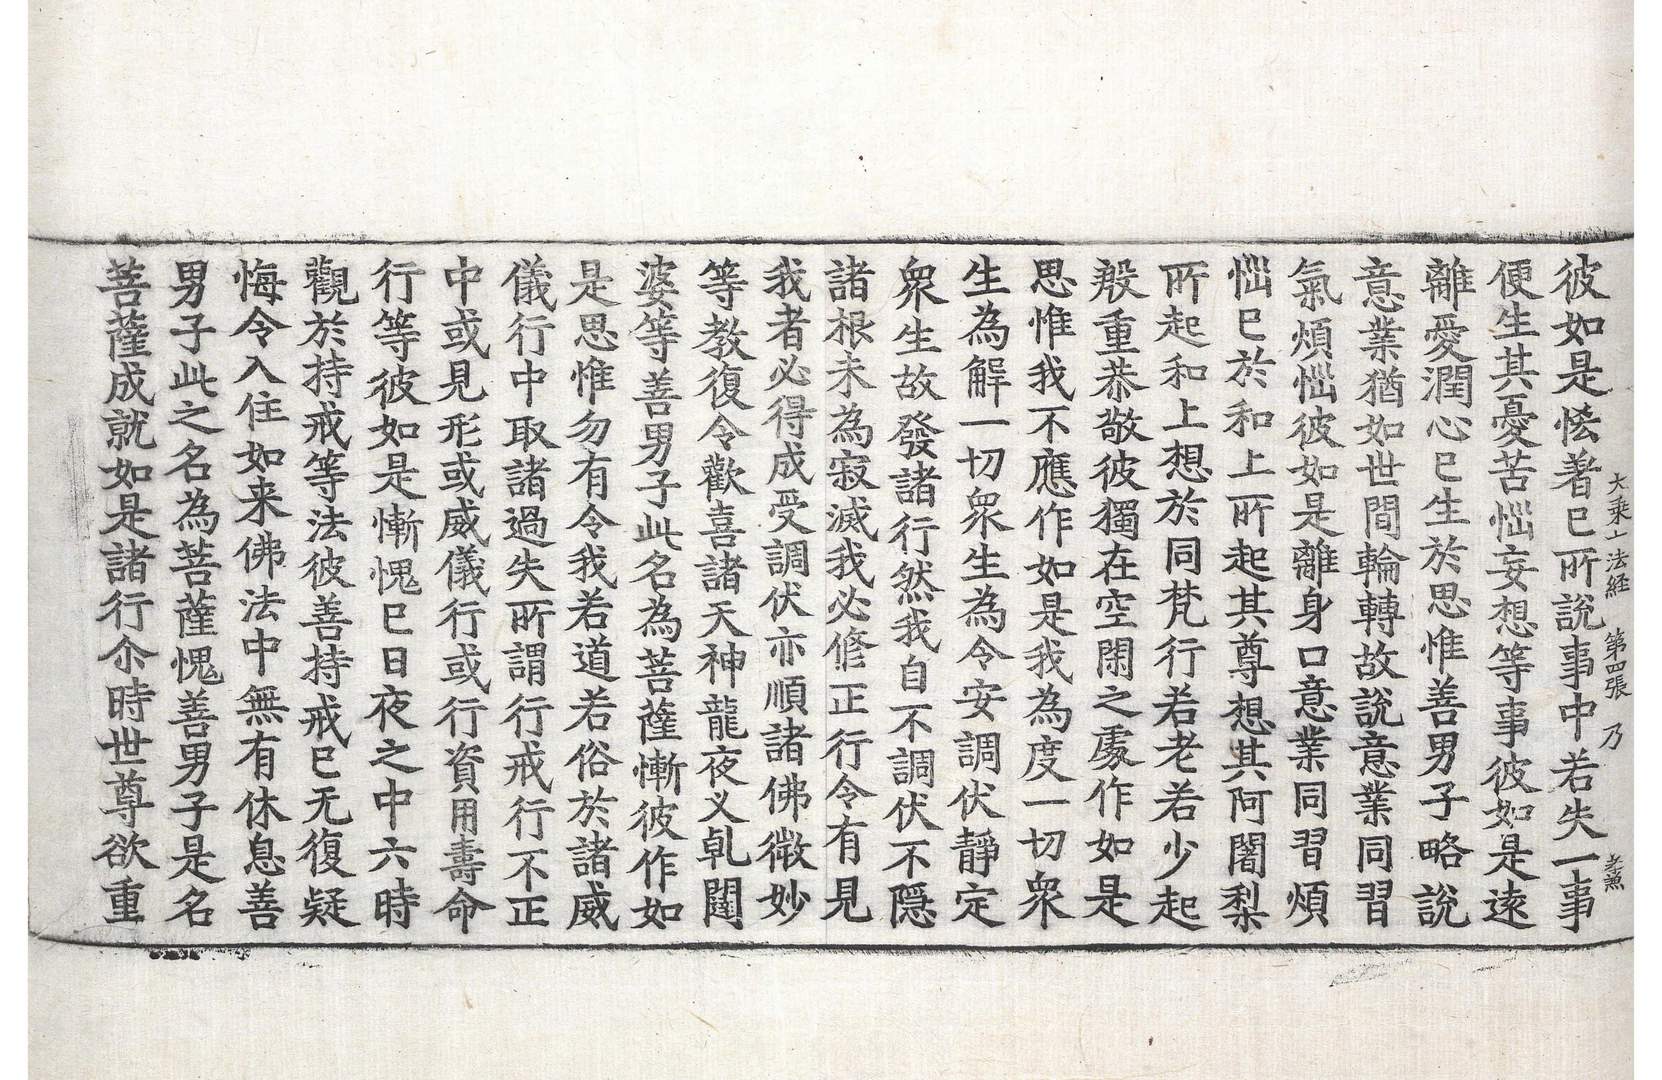 大乘一法経 第四張 乃
彼如是恡著巳所說事中若失一事
便生其憂苦惱妄想等事彼如是遠
離愛潤心巳生於思惟善男子略說
意業猶如世間輪轉故說意業同習
氣煩惱彼如是離身口意業同習煩
惱巳於和上所起其尊想其阿闍梨
所起和上想於同梵行若老若少起
殷重恭敬彼獨在空閑之處作如是
思惟我不應作如是我為度一切衆
生為解一切衆生為令安調伏靜定
衆生故發諸行然我自不調伏不隱
諸根未為寂滅我必修正行令有見
我者必得成受調伏亦順諸佛微妙
等教復令歡喜諸天神龍夜叉乹闥
婆等善男子此名為菩薩慚彼作如
是思惟勿有令我若道若俗於諸威
儀行中取諸過失所謂行戒行不正
中或見形或威儀行或行資用壽命
行等彼如是慚愧巳日夜之中六時
觀於持戒等法彼善持戒巳无復疑
悔令入住如来佛法中無有休息善
男子此之名為菩薩愧善男子是名
菩薩成就如是諸行尒時世尊欲重